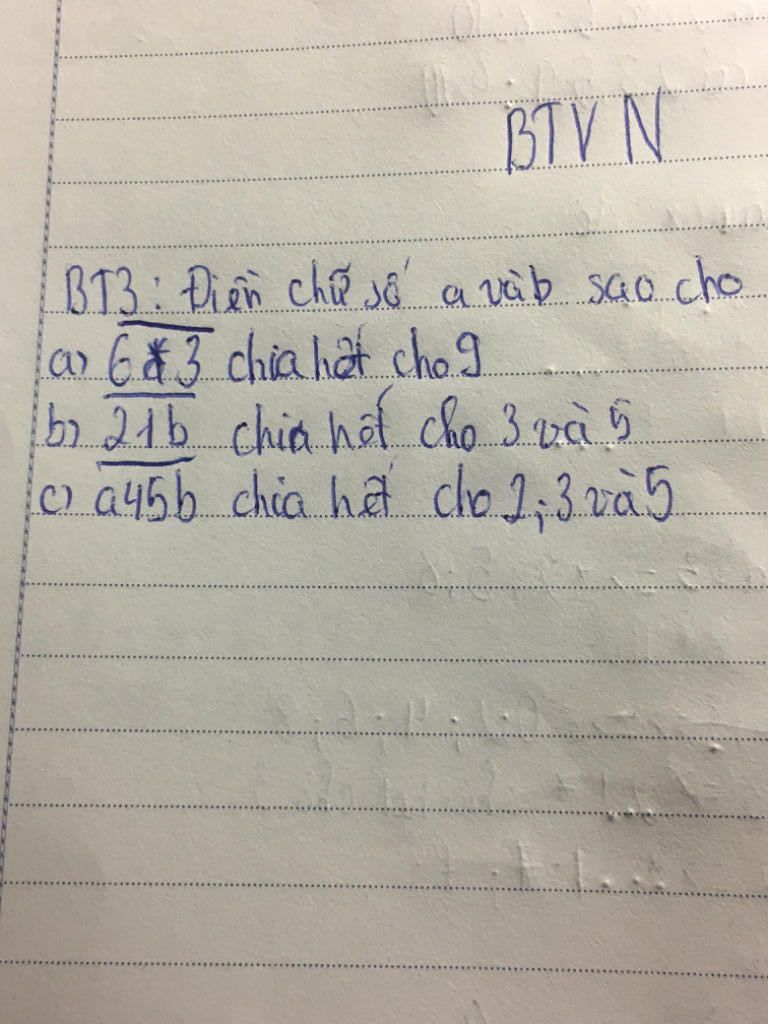 BTVN
BT3: Điền chữ số a và b sao cho
a) 6*3 chia hết cho 9
b) 21b chia hết cho 3 và 5
c) a45b chia hết cho 2; 3 và 5